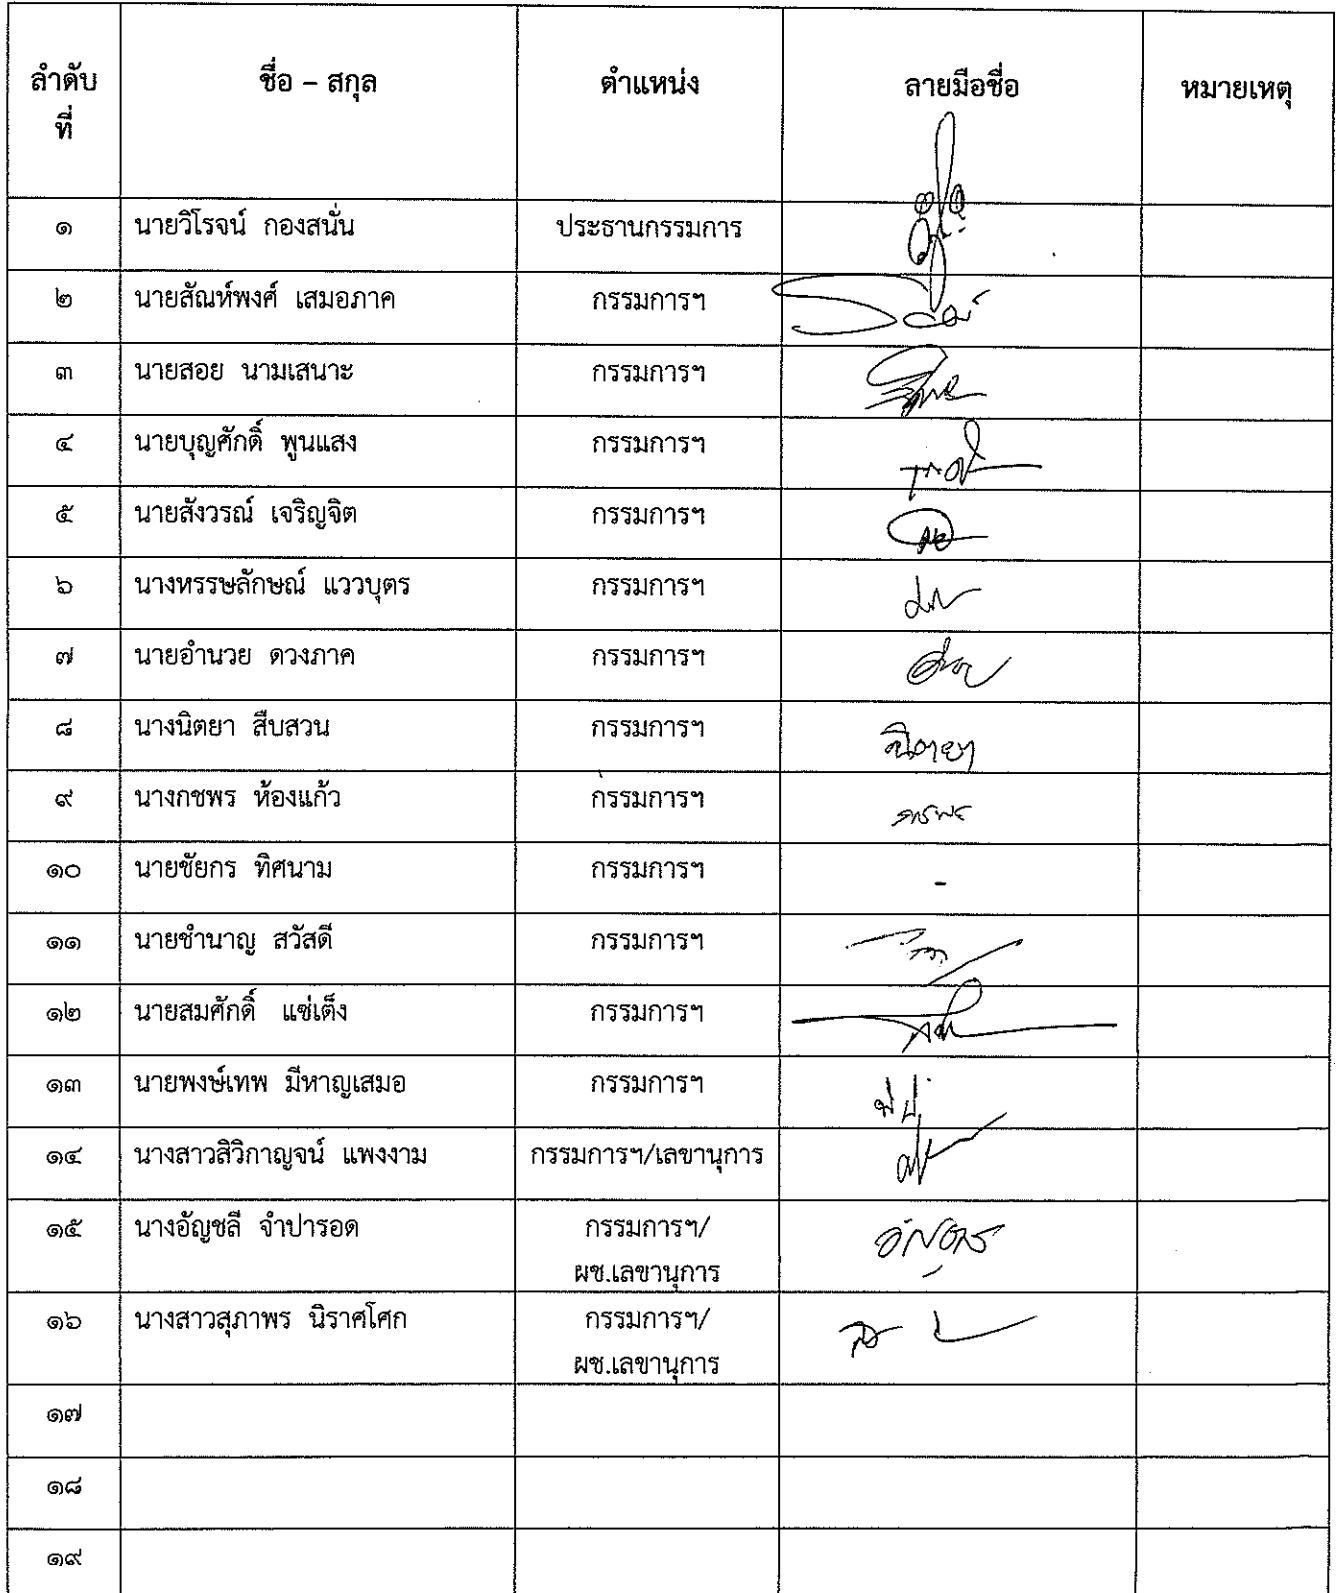 ลำดับ ชื่อ – สกุล ตำแหน่ง ลายมือชื่อ หมายเหตุ
ที่
๑ นายวิโรจน์ กองสนั่น ประธานกรรมการ
๒ นายสัณห์พงศ์ เสมอภาค กรรมการฯ
๓ นายสอย นามเสนาะ กรรมการฯ
๔ นายบุญศักดิ์ พูนแสง กรรมการฯ
๕ นายสังวรณ์ เจริญจิต กรรมการฯ
๖ นางหรรษลักษณ์ แววบุตร กรรมการฯ
๗ นายอำนวย ดวงภาค กรรมการฯ
๘ นางนิตยา สืบสวน กรรมการฯ นิตยา
๙ นางกชพร ห้องแก้ว กรรมการฯ
๑๐ นายชัยกร ทิศนาม กรรมการฯ -
๑๑ นายชำนาญ สวัสดี กรรมการฯ
๑๒ นายสมศักดิ์ แซ่เต็ง กรรมการฯ
๑๓ นายพงษ์เทพ มีหาญเสมอ กรรมการฯ
๑๔ นางสาวสิวิกาญจน์ แพงงาม กรรมการฯ/เลขานุการ
๑๕ นางอัญชลี จำปารอด กรรมการฯ/
ผช.เลขานุการ
๑๖ นางสาวสุภาพร นิราศโศก กรรมการฯ/
ผช.เลขานุการ
๑๗
๑๘
๑๙